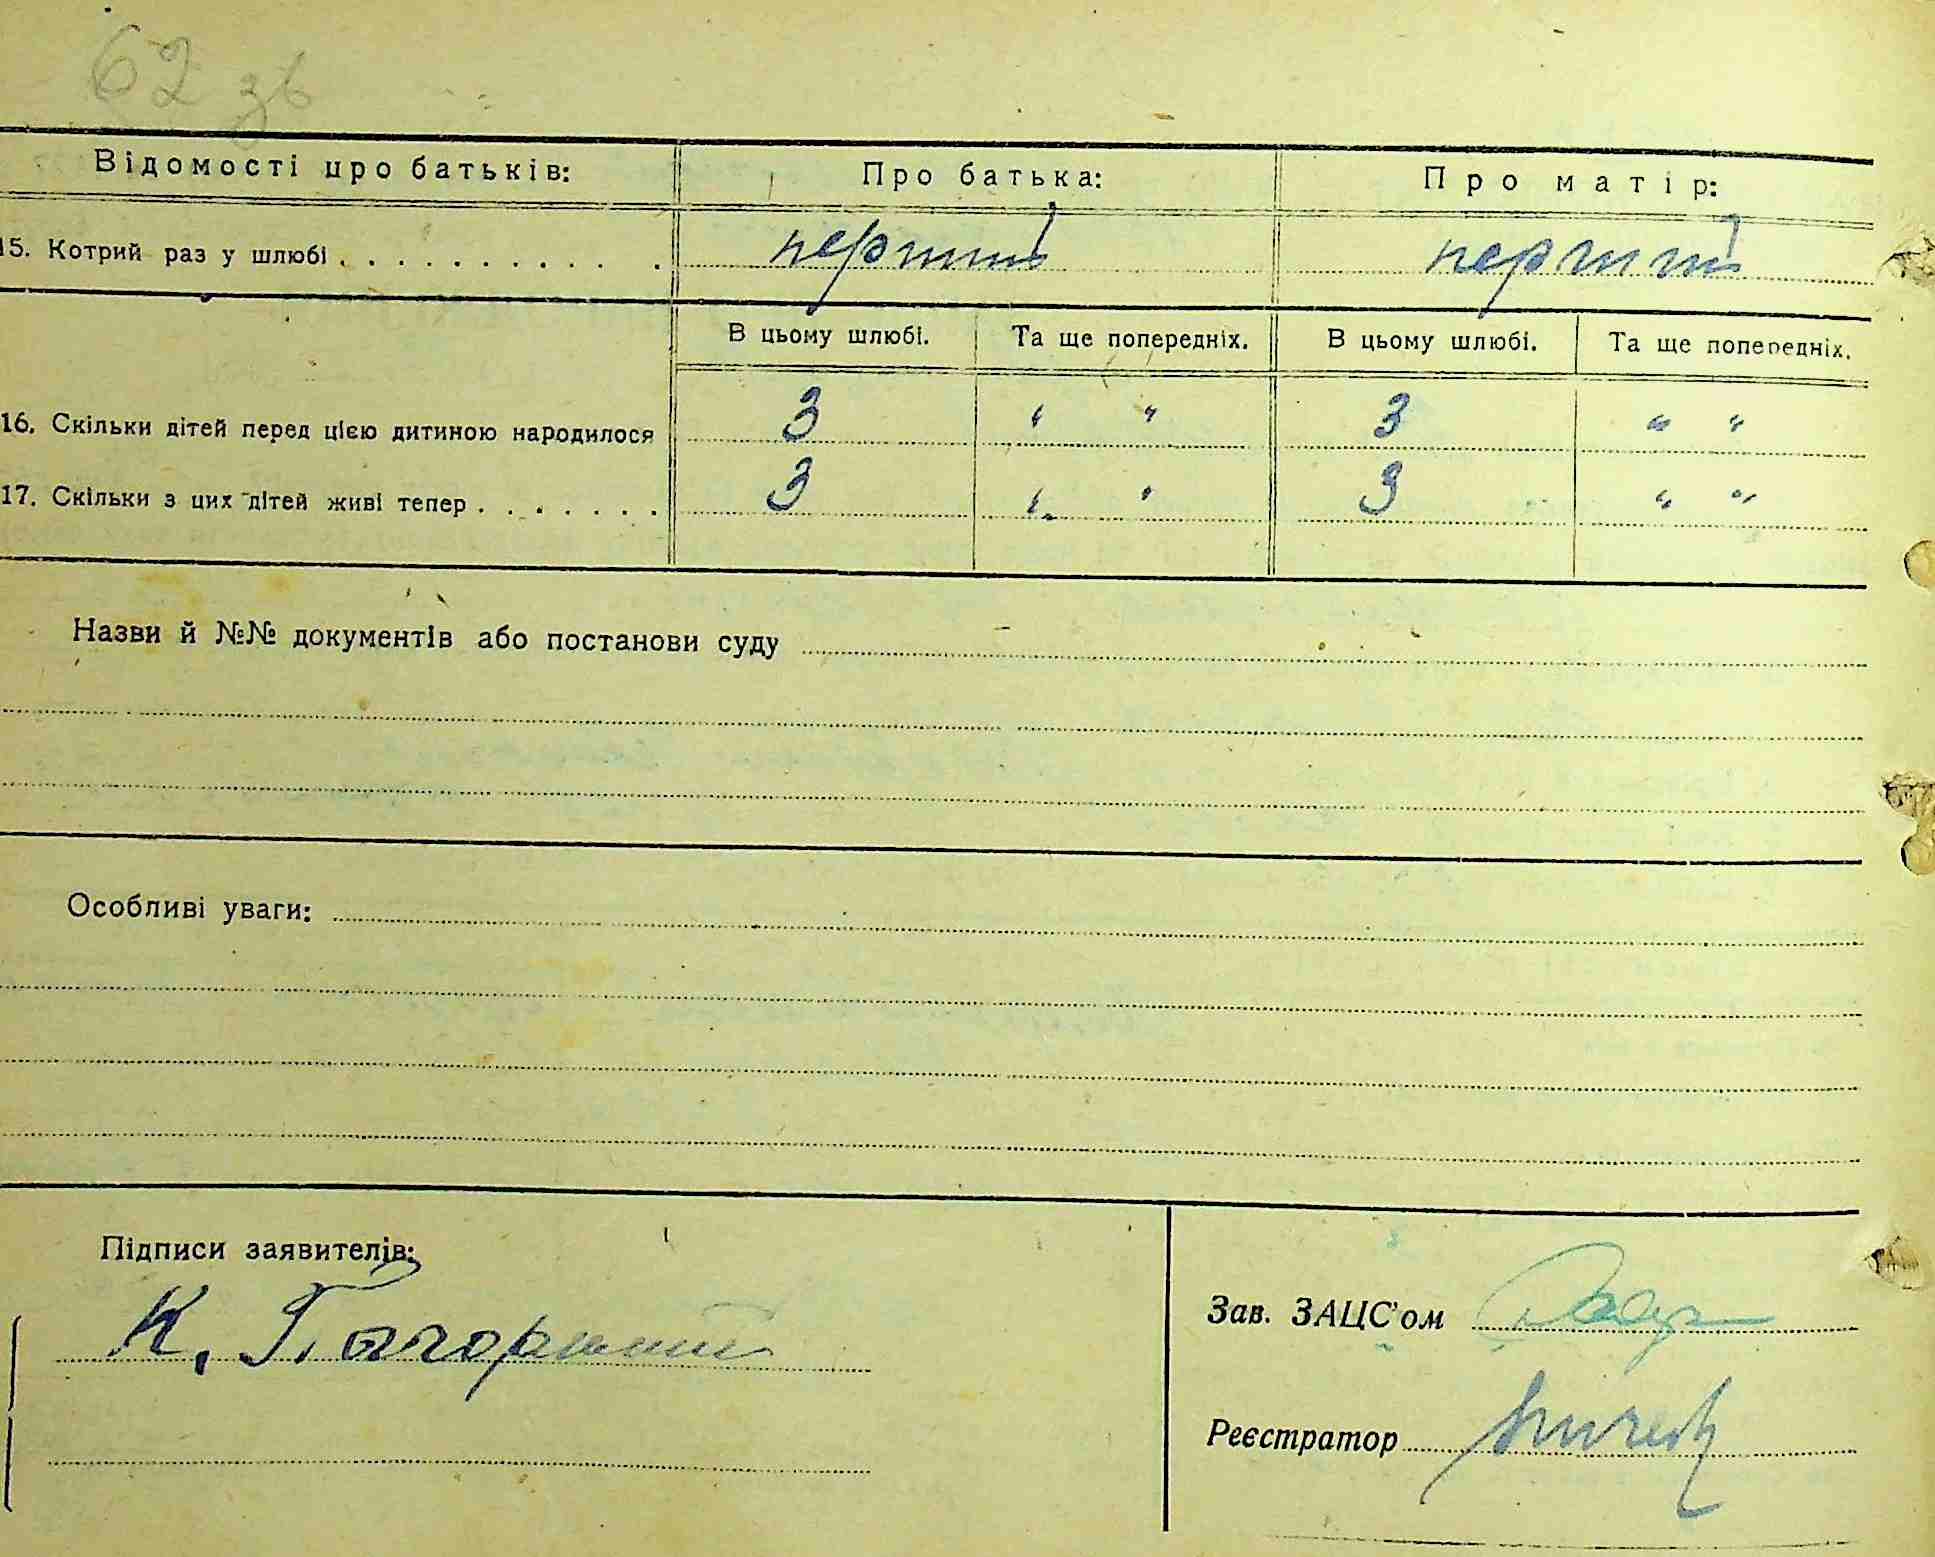 62 зв
Відомості про батьків: Про батька: Про матір:
15. Котрий раз у шлюбі . . . . . . . . . . . перший перший
В цьому шлюбі. Та ще попередніх. В цьому шлюбі. Та ще попередніх.
16. Скільки дітей перед цією дитиною народилося 3 " " 3 " "
17. Скільки з цих дітей живі тепер . . . . . . . 3 " " 3 " "
Назви й №№ документів або постанови суду
Особливі уваги:
Підписи заявителів:
К.
Зав. ЗАЦС'ом
Реєстратор